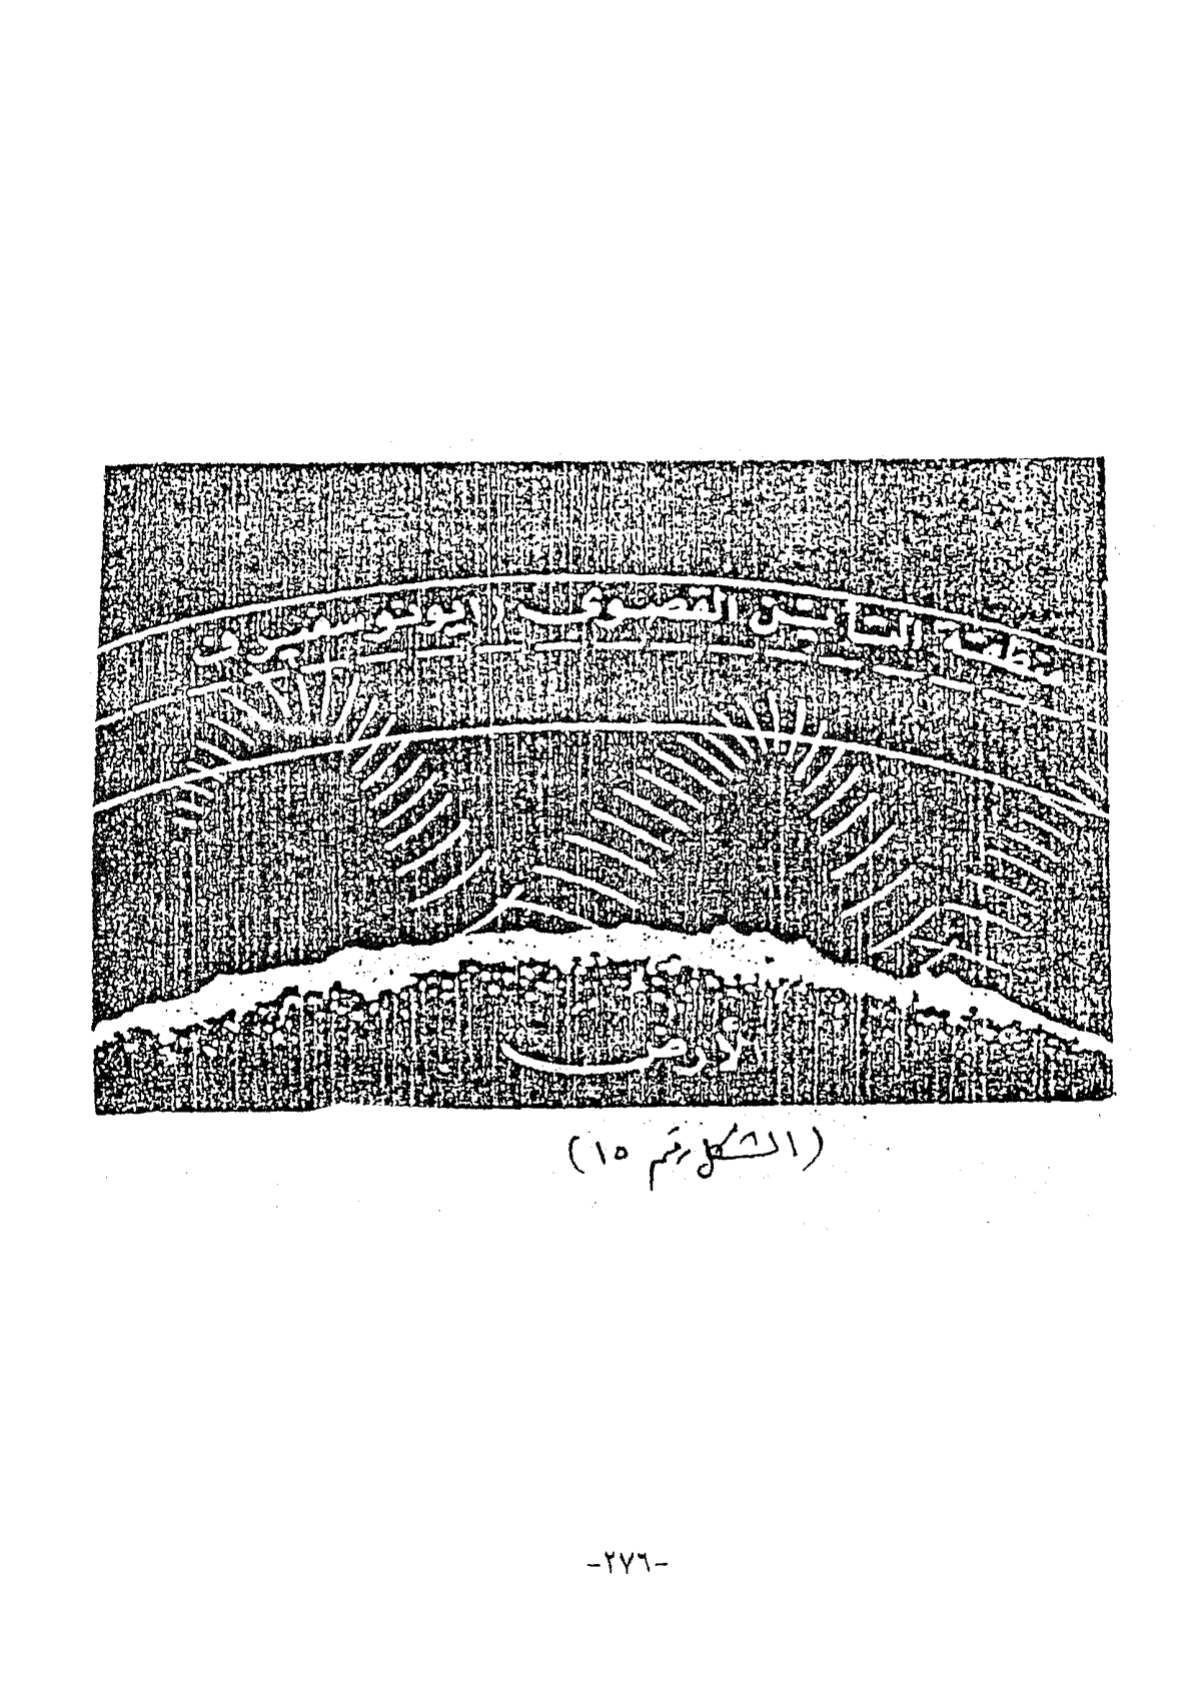 منطقة التأين القصوى (ايونوسفيرى)
الأرض
(الشكل رقم ١٥)
-٢٧٦-